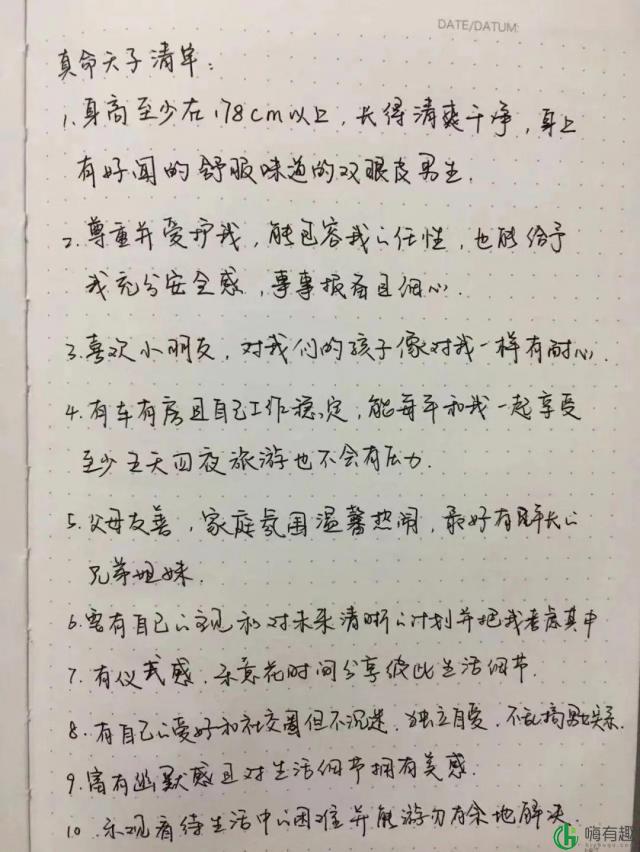 DATE/DATUM:
真命天子清单：
1. 身高至少在178cm以上，长得清爽干净，身上
有好闻的舒服味道的双眼皮男生.
2. 尊重并爱护我，能包容我的任性，也能给予
我充分安全感，事事报备且细心.
3. 喜欢小朋友，对我们的孩子像对我一样有耐心.
4. 有车有房且自己工作稳定，能每年和我一起享受
至少五天四夜旅游也不会有压力.
5. 父母友善，家庭氛围温馨热闹，最好有年长的
兄弟姐妹.
6. 要有自己的主见和对未来清晰的计划并把我考虑其中
7. 有仪式感，乐意花时间分享彼此生活细节.
8. 有自己的爱好和社交圈但不沉迷，独立自爱，不乱搞男女关系.
9. 富有幽默感且对生活细节拥有美感.
10. 乐观看待生活中的困难并能游刃有余地解决.
嗨有趣